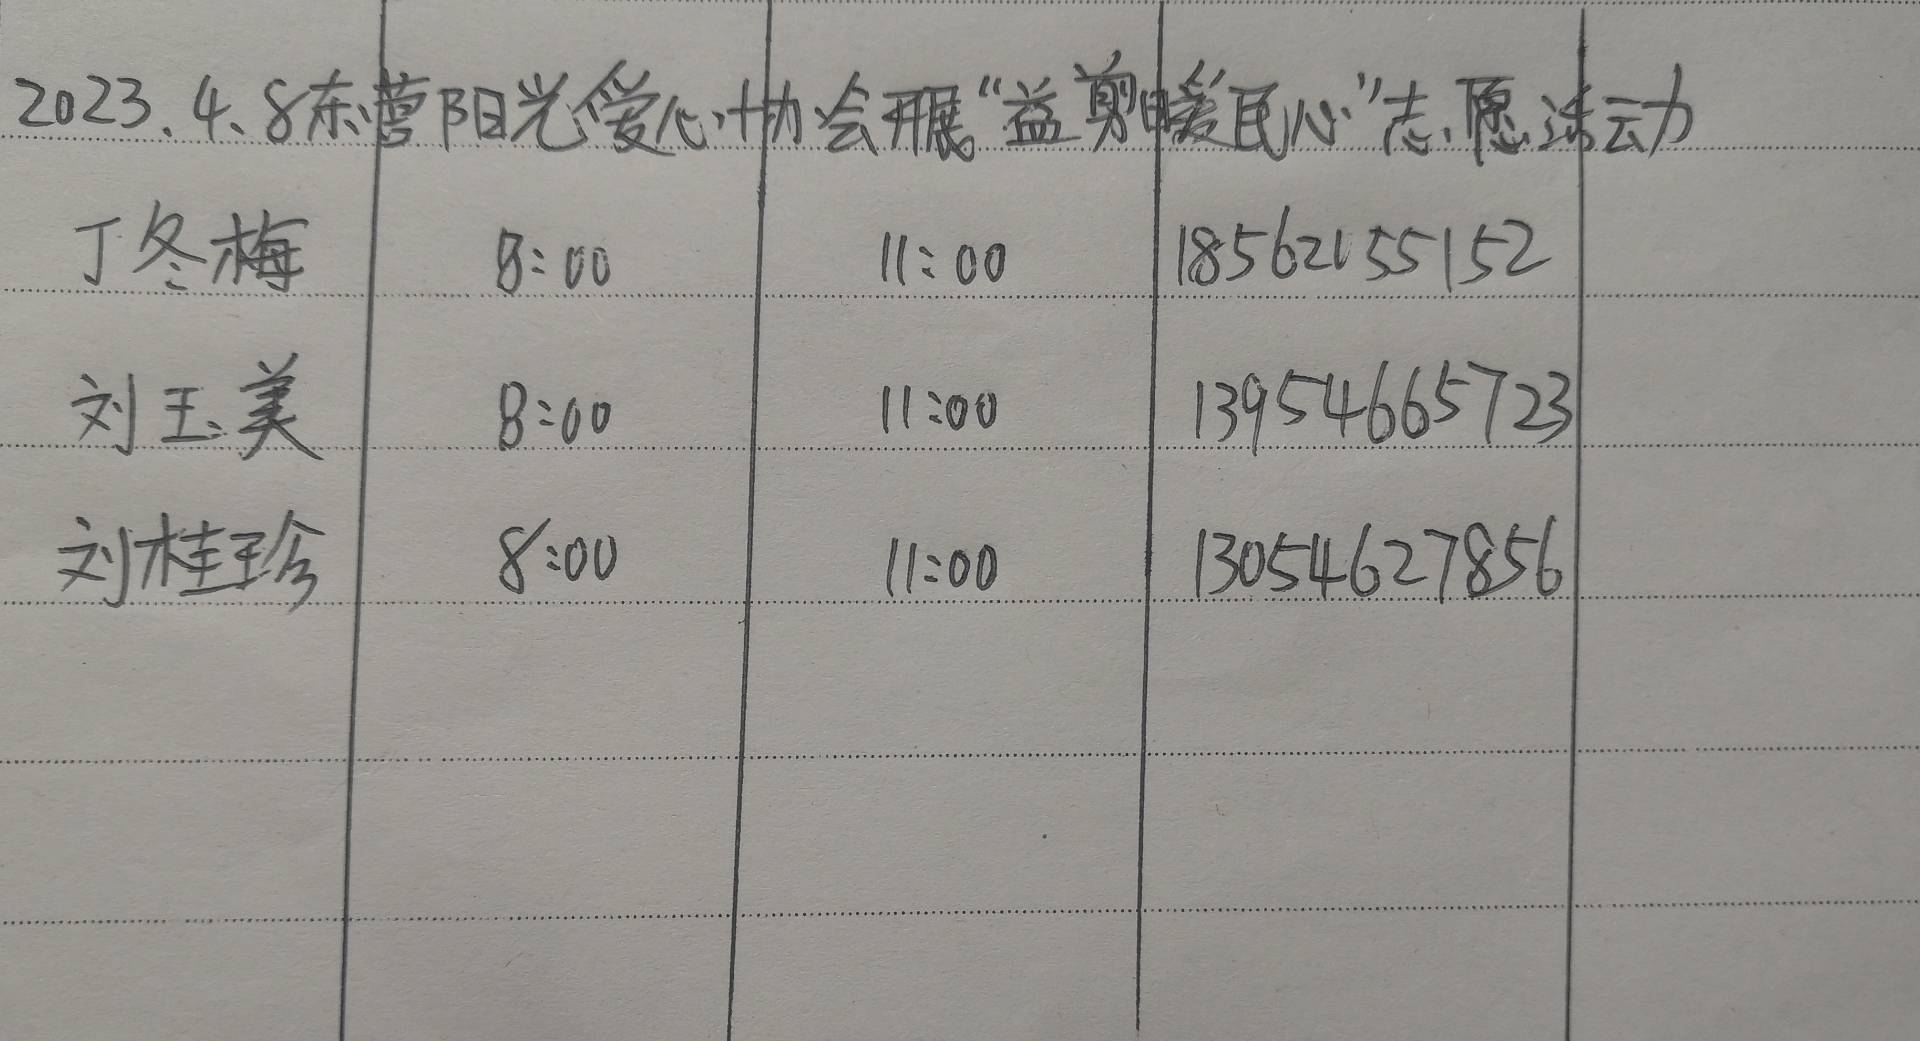 2023.4.8东营阳光爱心协会开展“益剪暖民心”志愿活动
丁冬梅 8:00 11:00 18562155152
刘玉美 8:00 11:00 13954665723
刘桂珍 8:00 11:00 13054627856